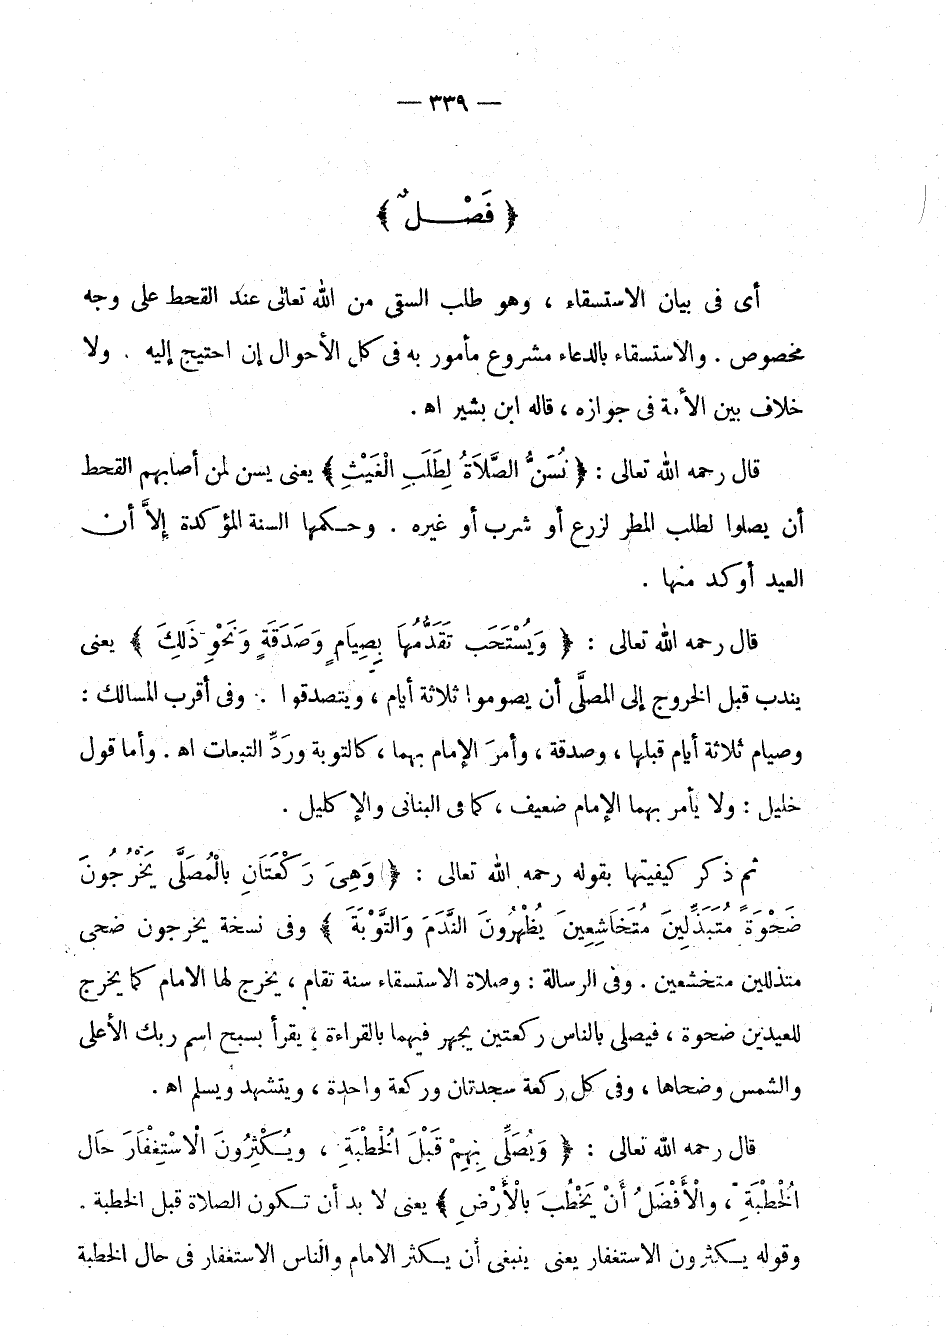 — ٣٣٩ —
﴿ فَصْلٌ ﴾
أى فى بيان الاستسقاء ، وهو طلب السقى من الله تعالى عند القحط على وجه
مخصوص . والاستسقاء بالدعاء مشروع مأمور به فى كل الأحوال إن احتيج إليه . ولا
خلاف بين الأمة فى جوازه ، قاله ابن بشير اه .
قال رحمه الله تعالى : ﴿ تُسَنُّ الصَّلَاةُ لِطَلَبِ الْغَيْثِ ﴾ يعنى يسن لمن أصابهم القحط
أن يصلوا لطلب المطر لزرع أو شرب أو غيره . وحكمها السنة المؤكدة إلاَّ أن
العيد أوكد منها .
قال رحمه الله تعالى : ﴿ وَيُسْتَحَب تَقَدُّمُهَا بِصِيَامٍ وَصَدَقَةٍ وَنَحْوِ ذَلِكَ ﴾ يعنى
يندب قبل الخروج إلى المصلَّى أن يصوموا ثلاثة أيام ، ويتصدقوا . وفى أقرب المسالك :
وصيام ثلاثة أيام قبلها ، وصدقة ، وأمرَ الإمام بهما ، كالتوبة وردِّ التبعات اه . وأما قول
خليل : ولا يأمر بهما الإمام ضعيف ، كما فى البنانى والإكليل .
ثم ذكر كيفيتها بقوله رحمه الله تعالى : ﴿ وَهِىَ رَكْعَتَانِ بِالْمُصَلَّى يَخْرُجُونَ
ضَحْوَةً مُتَبَذِّلِينَ مُتَخَاشِعِينَ يُظْهِرُونَ النَّدَمَ وَالتَّوْبَةَ ﴾ وفى نسخة يخرجون ضحى
متذللين متخشعين . وفى الرسالة : وصلاة الاستسقاء سنة تقام ، يخرج لها الامام كما يخرج
للعيدين ضحوة ، فيصلى بالناس ركعتين يجهر فيهما بالقراءة ، يقرأ بسبح اسم ربك الأعلى
والشمس وضحاها ، وفى كل ركعة سجدتان وركعة واحدة ، ويتشهد ويسلم اه .
قال رحمه الله تعالى : ﴿ وَيُصَلِّى بِهِمْ قَبْلَ الْخُطْبَةِ ، ويُكْثِرُونَ الْاسْتِغْفَارَ حَال
الْخُطْبَةِ ، والْأَفْضَلُ أَنْ يَخْطُبَ بِالْأَرْضِ ﴾ يعنى لا بد أن تكون الصلاة قبل الخطبة .
وقوله يكثرون الاستغفار يعنى ينبغى أن يكثر الامام والناس الاستغفار فى حال الخطبة